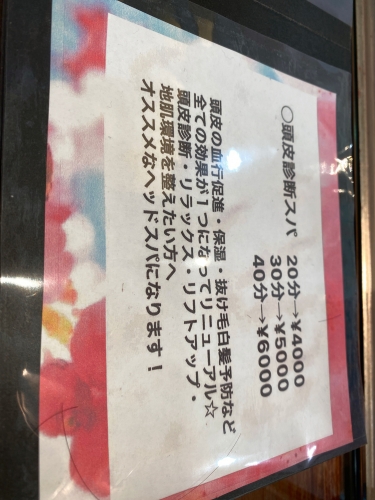 ○頭皮診断スパ 20分→¥4000
30分→¥5000
40分→¥6000
頭皮の血行促進・保湿・抜け毛白髪予防など
全ての効果が1つになってリニューアル☆
頭皮診断・リラックス・リフトアップ・
地肌環境を整えたい方へ
オススメなヘッドスパになります!